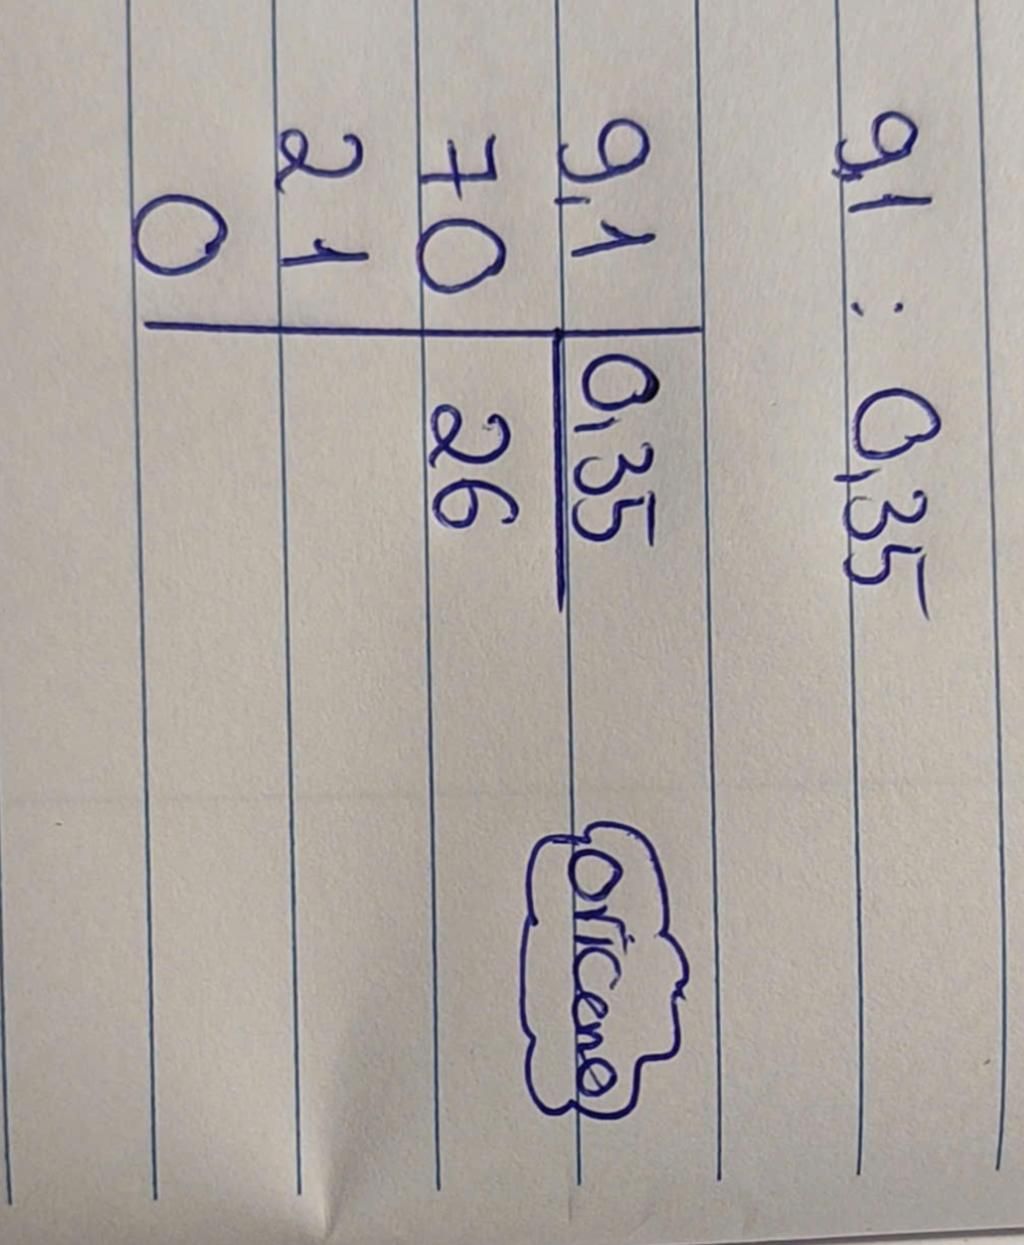 9,1 : 0,35
9,1 0,35
70 26
21
0
oriceme